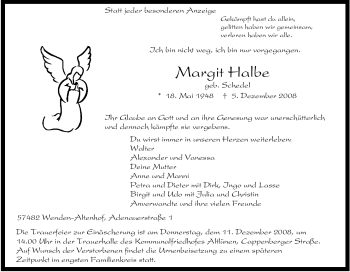 Statt jeder besonderen Anzeige
Gekämpft hast du allein,
gelitten haben wir gemeinsam,
verloren haben wir alle.
Ich bin nicht weg, ich bin nur vorgegangen.
Margit Halbe
geb. Schedel
* 18. Mai 1948 † 5. Dezember 2008
Ihr Glaube an Gott und an ihre Genesung war unerschütterlich
und dennoch kämpfte sie vergebens.
Du wirst immer in unseren Herzen weiterleben:
Walter
Alexander und Vanessa
Deine Mutter
Anne und Manni
Petra und Dieter mit Dirk, Ingo und Lasse
Birgit und Udo mit Julia und Christin
Anverwandte und ihre vielen Freunde
57482 Wenden-Altenhof, Adenauerstraße 1
Die Trauerfeier zur Einäscherung ist am Donnerstag, dem 11. Dezember 2008, um
14.00 Uhr in der Trauerhalle des Kommunalfriedhofes Altlünen, Cappenberger Straße.
Auf Wunsch der Verstorbenen findet die Urnenbeisetzung zu einem späteren
Zeitpunkt im engsten Familienkreis statt.